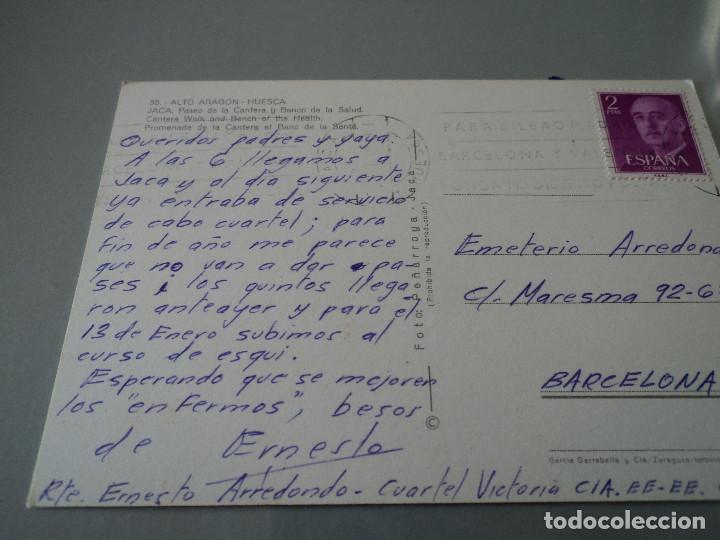 35. - ALTO ARAGON - HUESCA
JACA. Paseo de la Cantera y Banco de la Salud.
Cantera Walk and Bench of the Health.
Promenade de la Cantera et Banc de la Santé.
Queridos padres y yaya:
A las 6 llegamos a
Jaca y al día siguiente
ya entraba de servicio
de cabo cuartel; para
fin de año me parece
que no van a dar pa-
ses i los quintos llega
ron anteayer y para el
13 de Enero subimos al
curso de esqui.
Esperando que se mejoren
los "enfermos", besos
de Ernesto
Rte. Ernesto Arredondo - Cuartel Victoria CIA. EE-EE.
Foto: Peñarroya - Jaca
(Prohibida la reproducción)
©
PARA BILBAO
BARCELONA Y
2
PTAS
ESPAÑA
CORREOS
Emeterio Arredond
C/. Maresma 92-6
BARCELONA
García Garrabella y Cía. Zaragoza
todocoleccion
todocoleccion.net